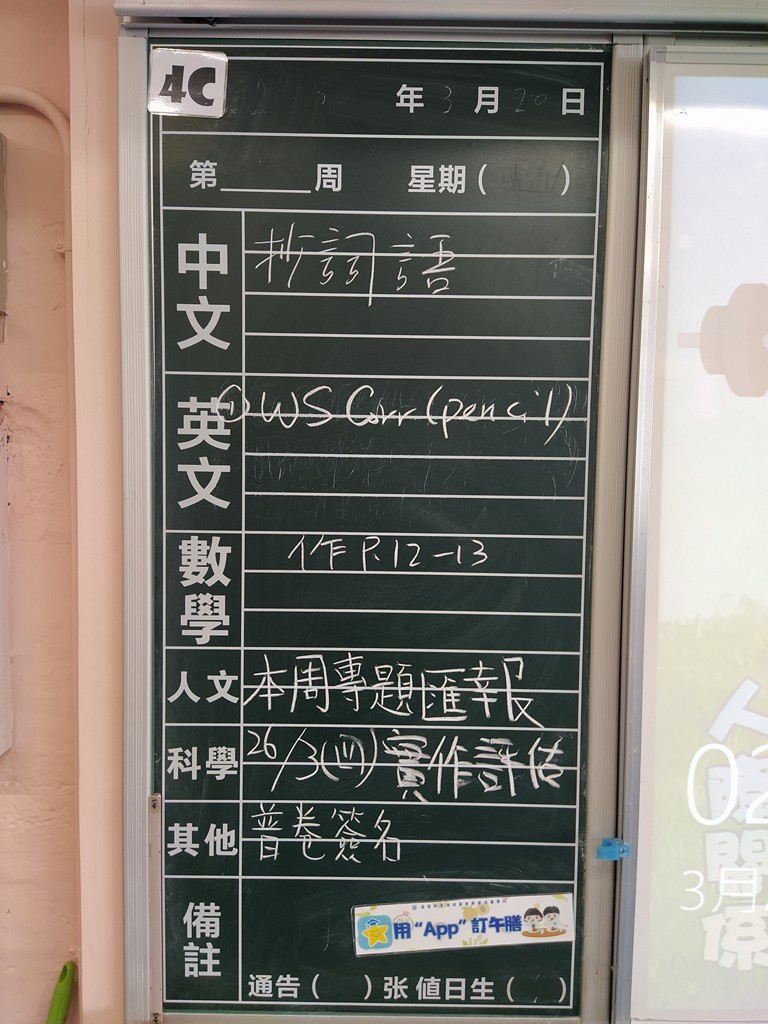 4C
年3月20日
第____周 星期( )
中文
抄詞語
英文
① WS Corr (pencil)
數學
作 P.12-13
人文
本周專題匯報
科學
26/3(四)實作評估
其他
普卷簽名
備註
用“App”訂午膳
通告( )张 值日生( )
人際關係
02
3月